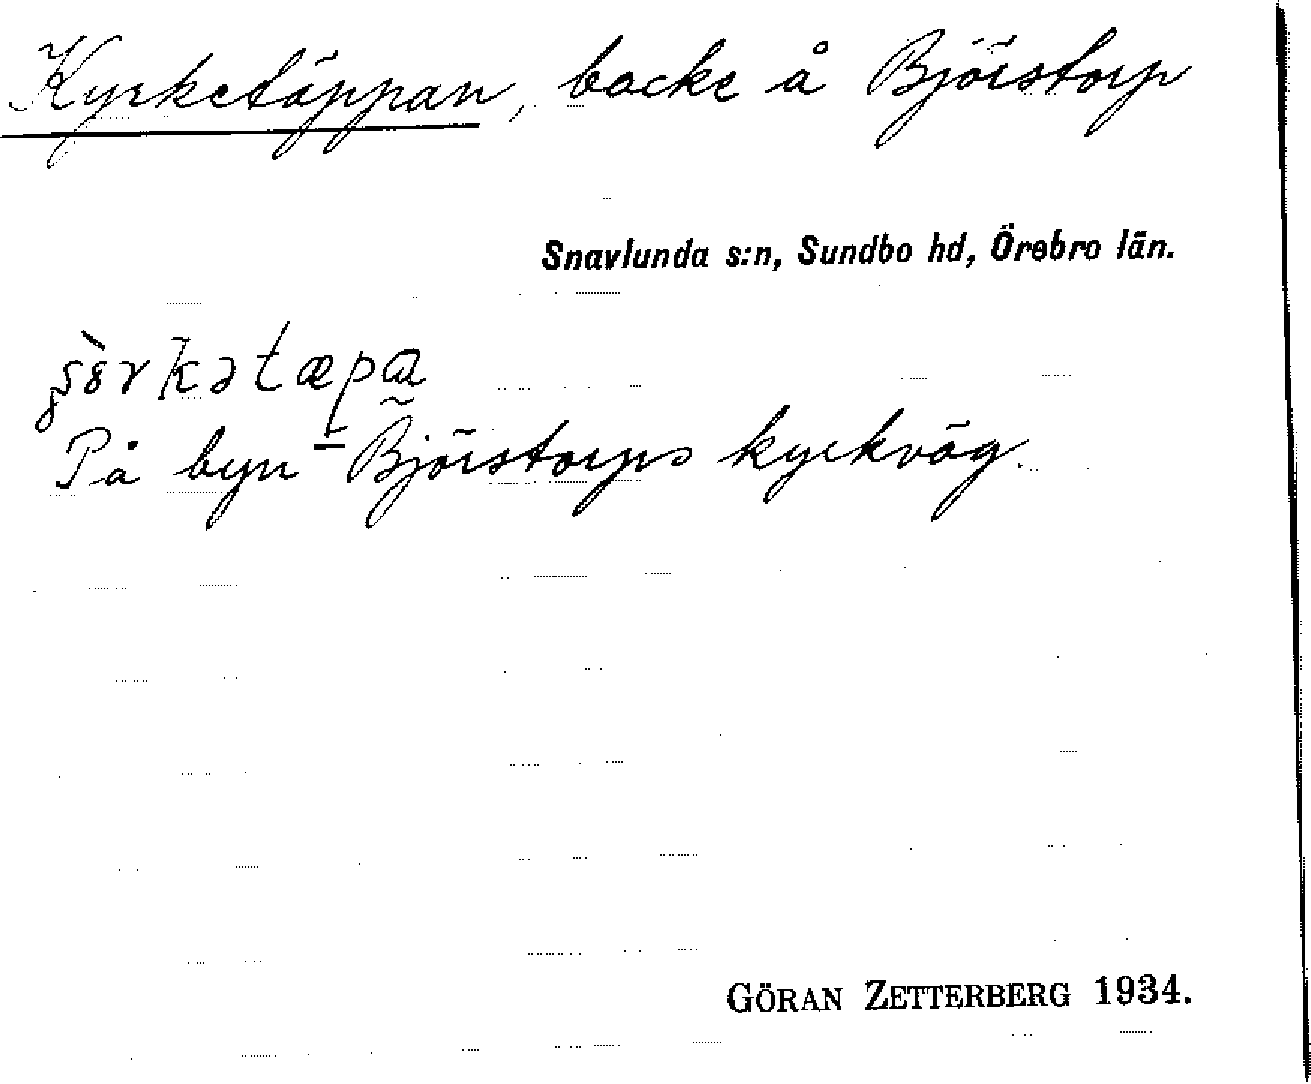 Kyrketäppan, backe å Björstorp
Snavlunda s:n, Sundbo hd, Örebro län.
På byn Björstorps kyrkväg.
GÖRAN ZETTERBERG 1934.